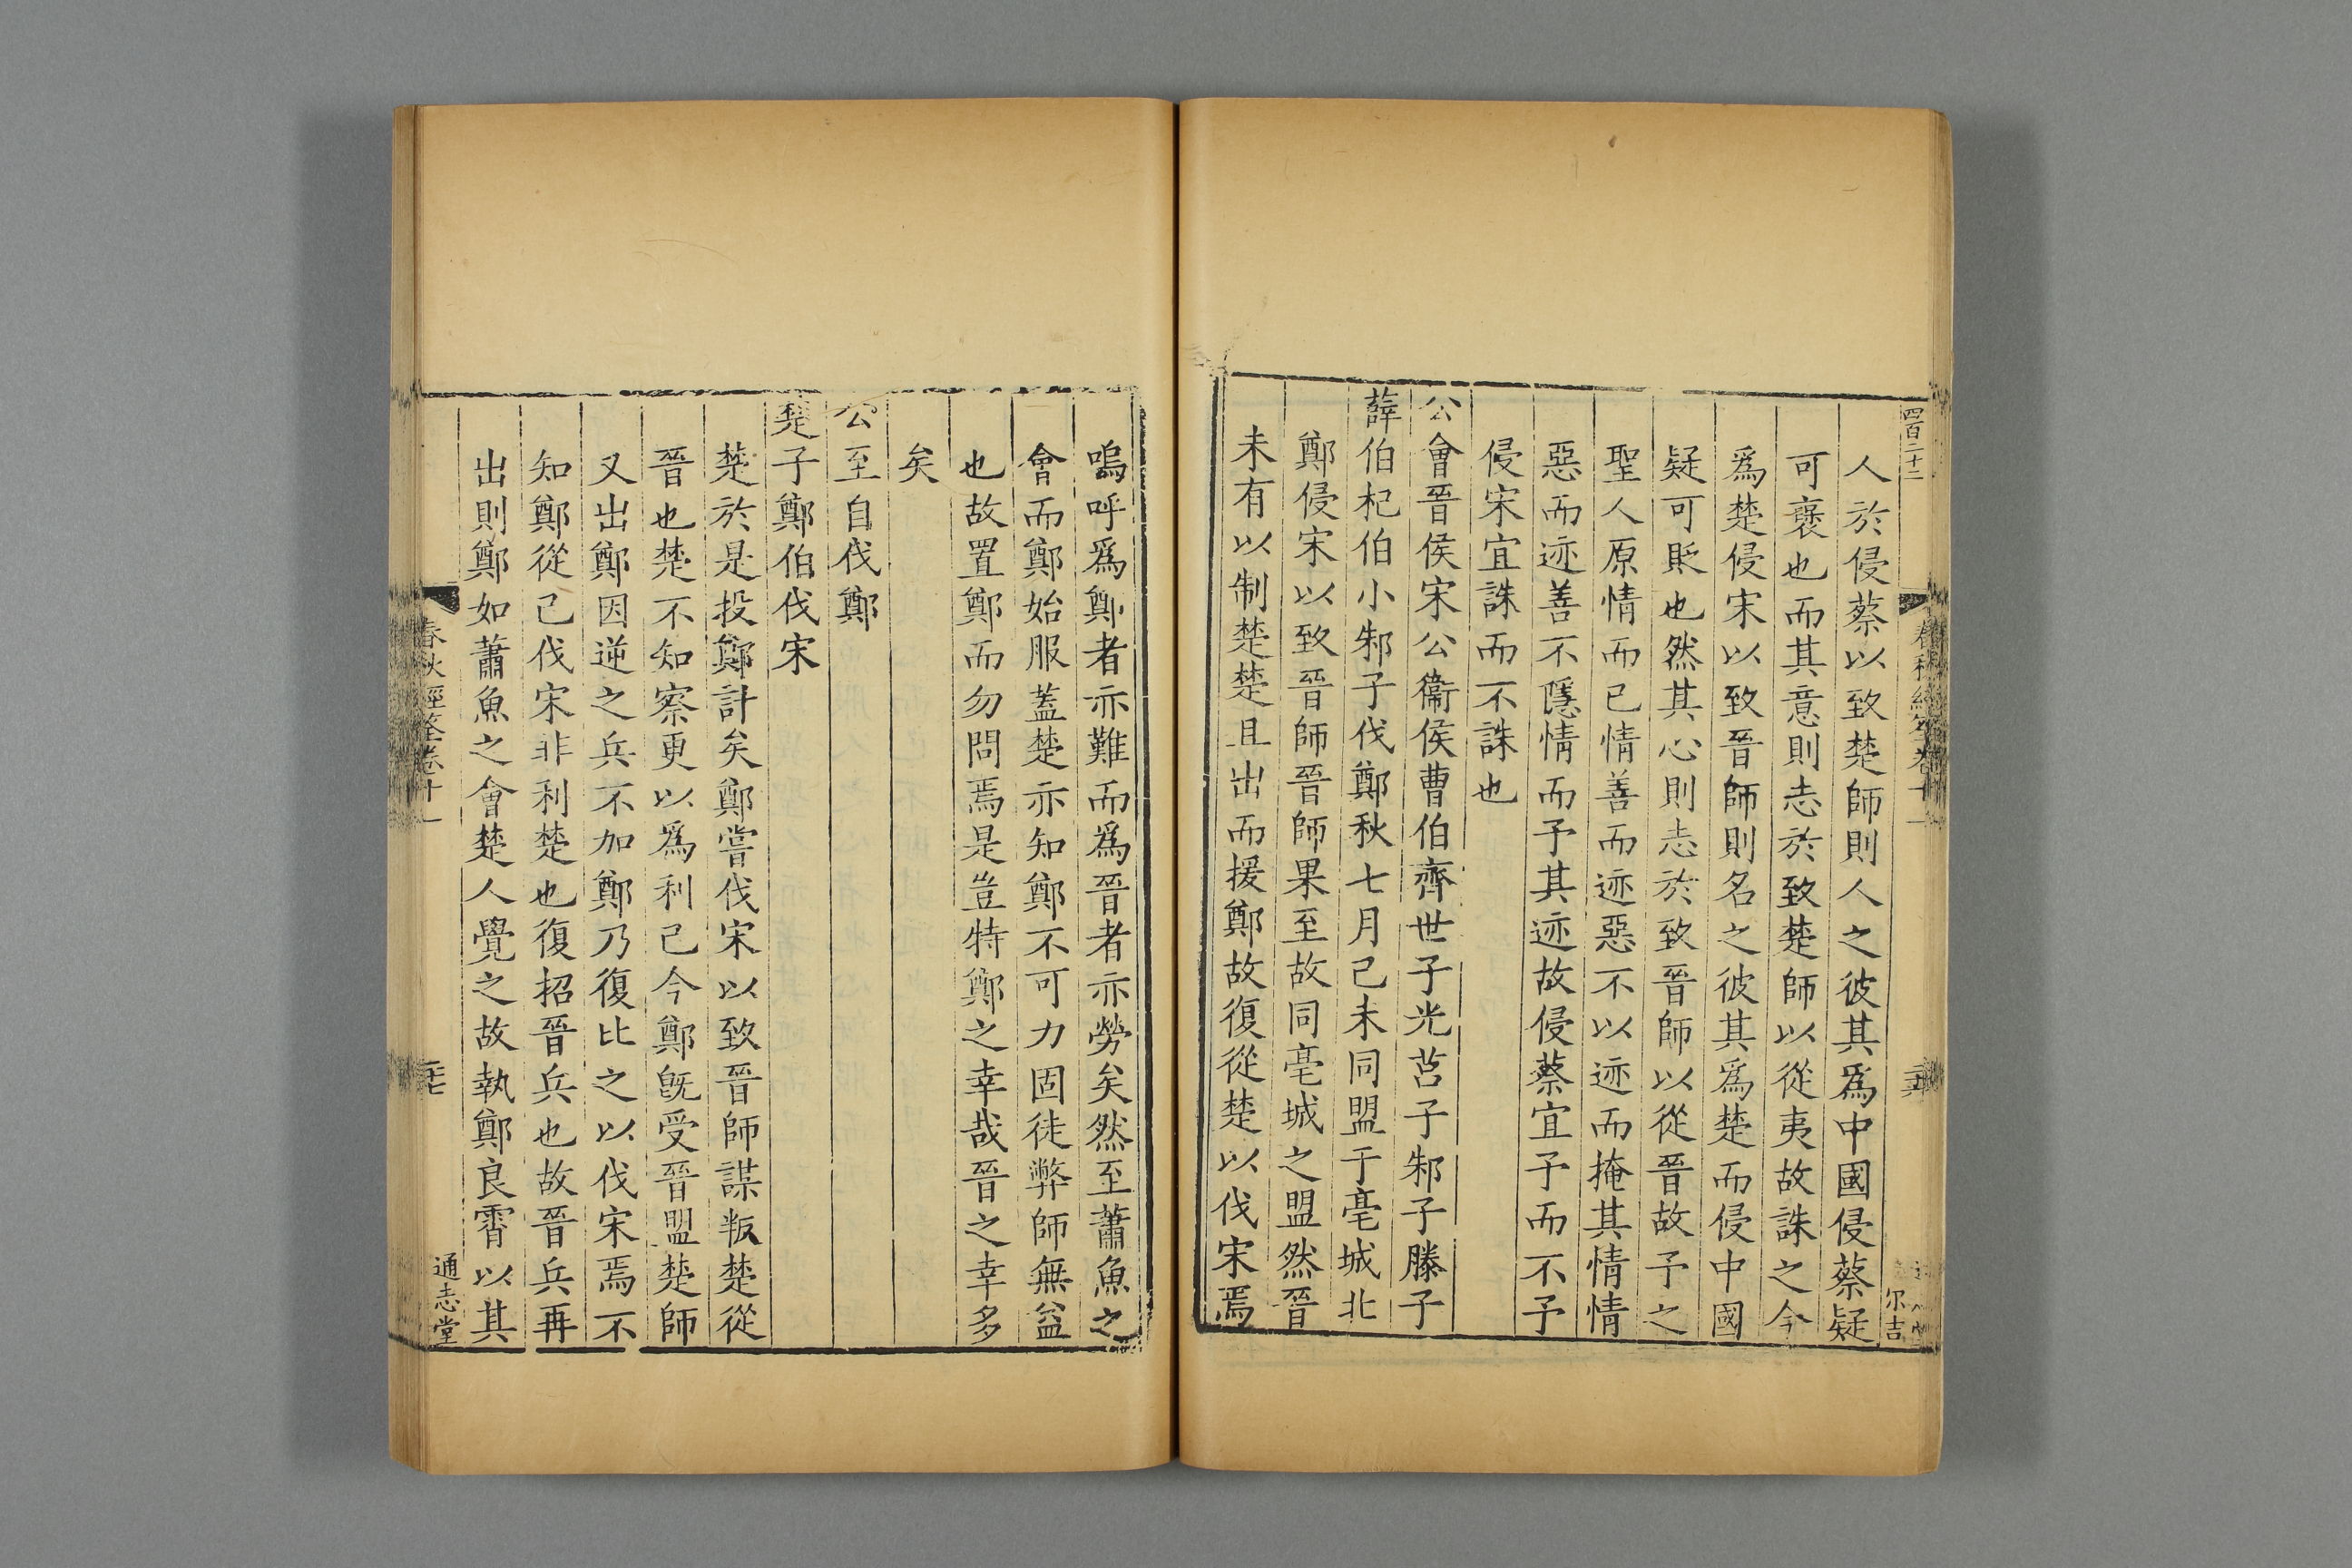 四百二十二
人於侵蔡以致楚師則人之彼其爲中國侵蔡疑
可襃也而其意則志於致楚師以從夷故誅之今
爲楚侵宋以致晉師則名之彼其爲楚而侵中國
疑可貶也然其心則志於致晉師以從晉故予之
聖人原情而已情善而迹惡不以迹而掩其情情
惡而迹善不隱情而予其迹故侵蔡宜予而不予
侵宋宜誅而不誅也
公會晉侯宋公衞侯曹伯齊世子光莒子邾子滕子
薛伯杞伯小邾子伐鄭秋七月己未同盟于亳城北
鄭侵宋以致晉師晉師果至故同亳城之盟然晉
未有以制楚楚且出而援鄭故復從楚以伐宋焉
尔吉
嗚呼爲鄭者亦難而爲晉者亦勞矣然至蕭魚之
會而鄭始服蓋楚亦知鄭不可力固徒弊師無益
也故置鄭而勿問焉是豈特鄭之幸哉晉之幸多
矣
公至自伐鄭
楚子鄭伯伐宋
楚於是投鄭計矣鄭嘗伐宋以致晉師謀叛楚從
晉也楚不知察更以爲利己今鄭旣受晉盟楚師
又出鄭因逆之兵不加鄭乃復比之以伐宋焉不
知鄭從己伐宋非利楚也復招晉兵也故晉兵再
出則鄭如蕭魚之會楚人覺之故執鄭良霄以其
春秋經筌卷十一
二十七
通志堂